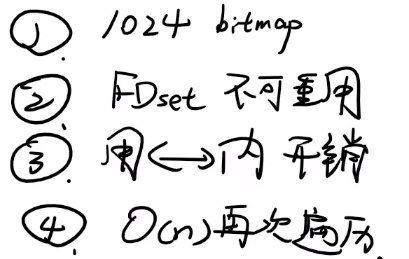 ① 1024 bitmap
② FDset 不可重用
③ 用<->内 开销
④ O(n)再次遍历.